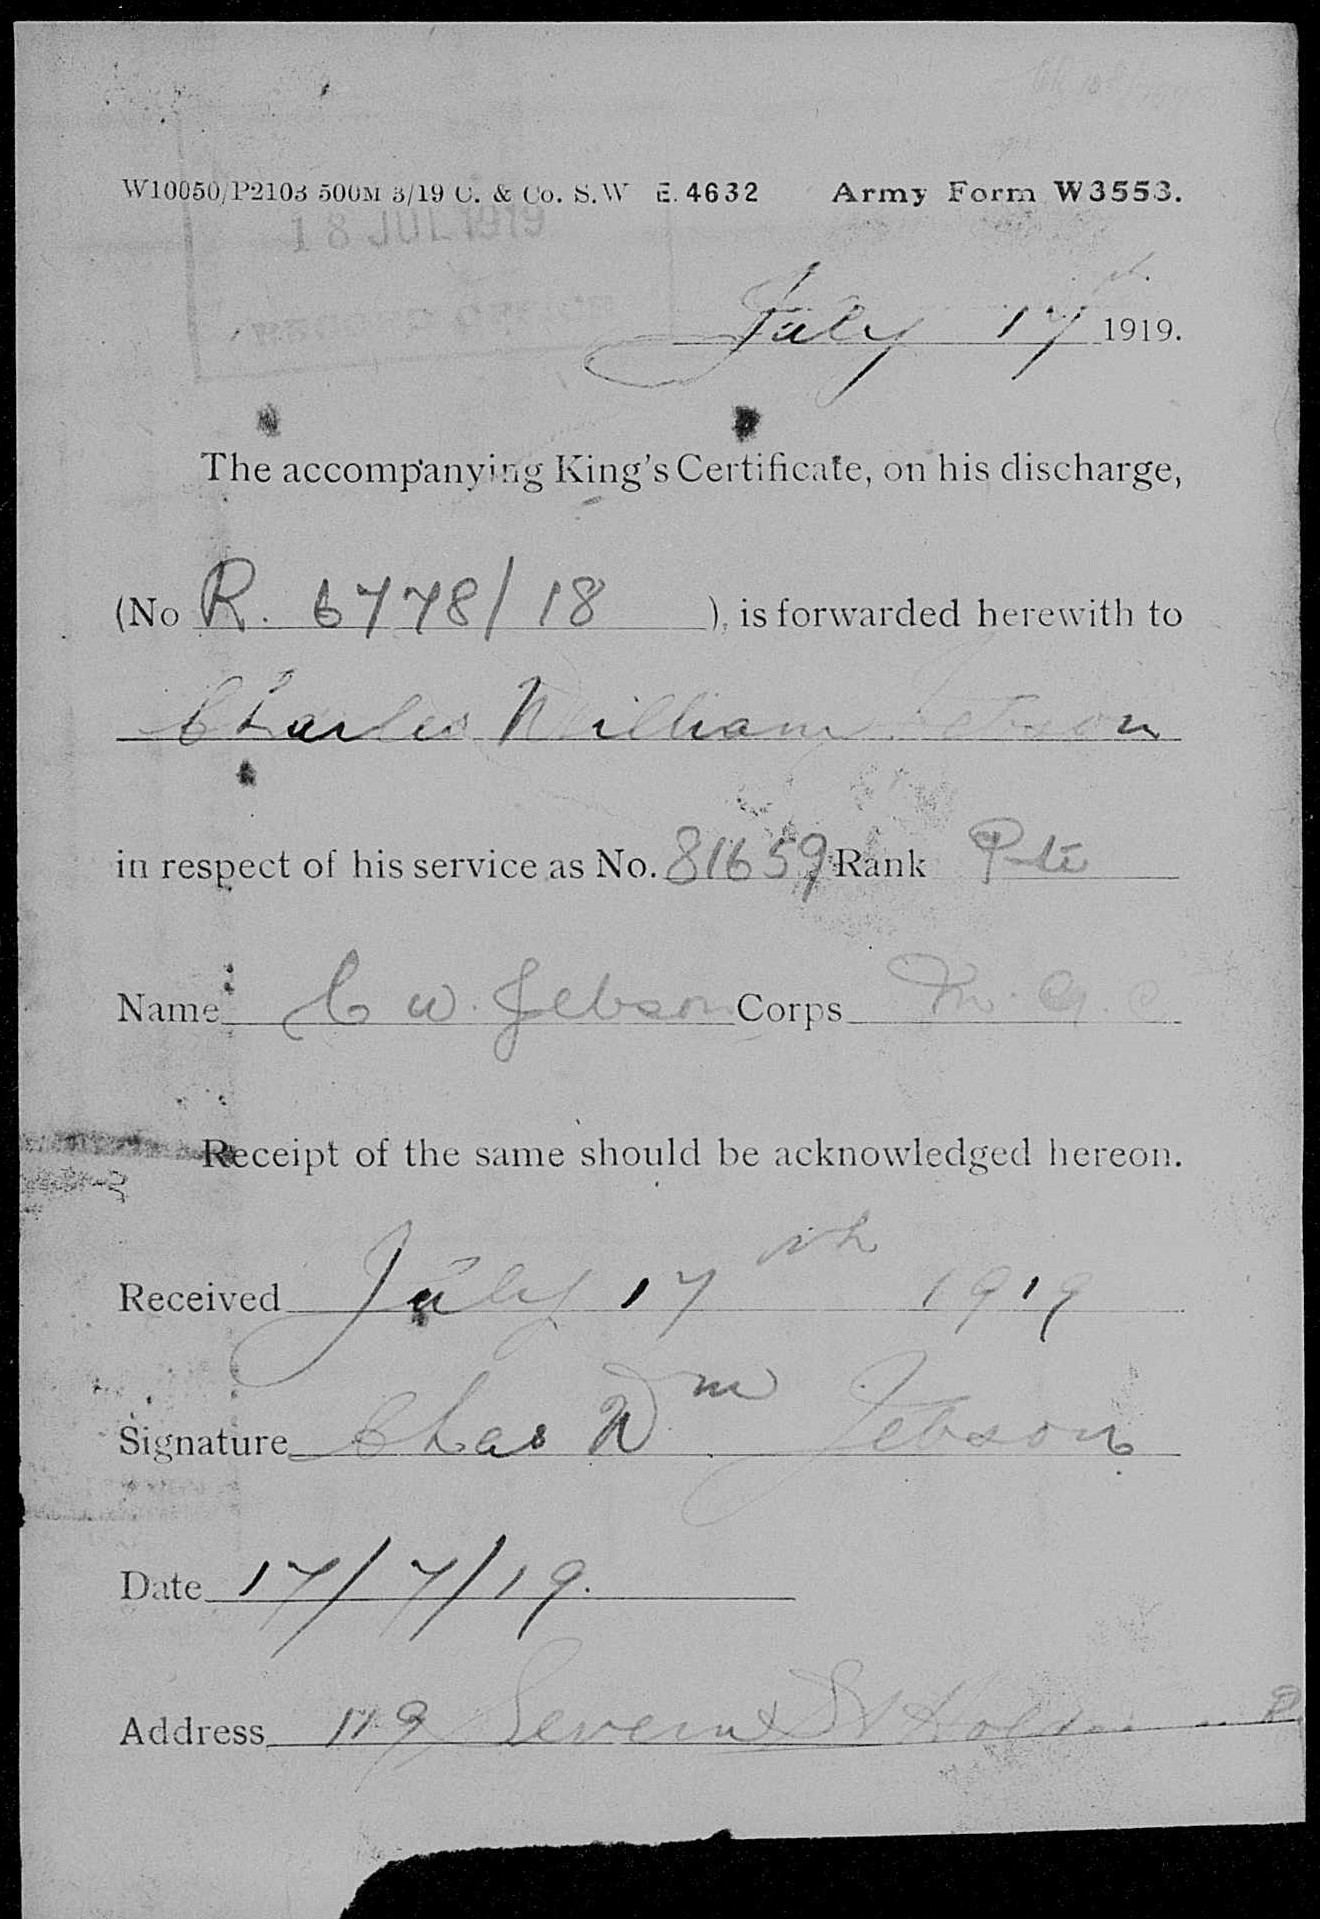 W10050/P2103 500M 3/19 C. & Co. S.W E. 4632 Army Form W3553.
18 JUL 1919
July 17th 1919.
The accompanying King's Certificate, on his discharge,
(No R. 6778/18 ), is forwarded herewith to
Charles William Jebson
in respect of his service as No. 81659 Rank Pte
Name C W. Jebson Corps M. G. C
Receipt of the same should be acknowledged hereon.
Received July 17th 1919
Signature Chas Wm Jebson
Date 17/7/19.
Address 119 Severn St